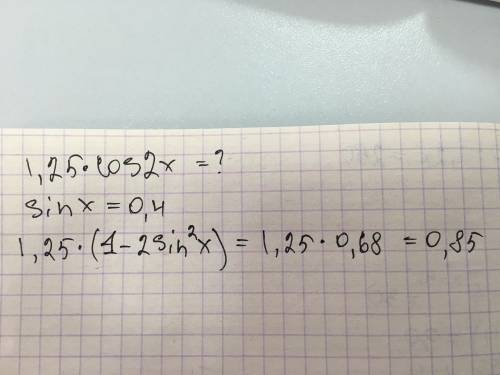 1,25·cos2x = ?
sin x = 0,4
1,25·(1-2sin²x) = 1,25·0,68 = 0,85